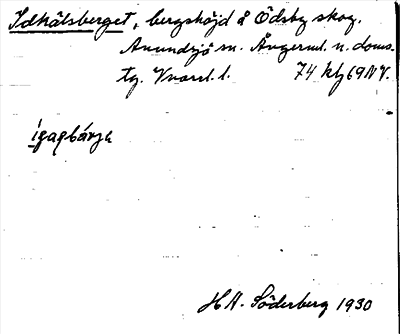 Idkålsberget, bergshöjd å Ödsby skog.
Anundsjö sn. Ångerml. n. doms.
tg. Vnorrl. l. 74 kbg 69 NV.
H A. Söderberg 1930